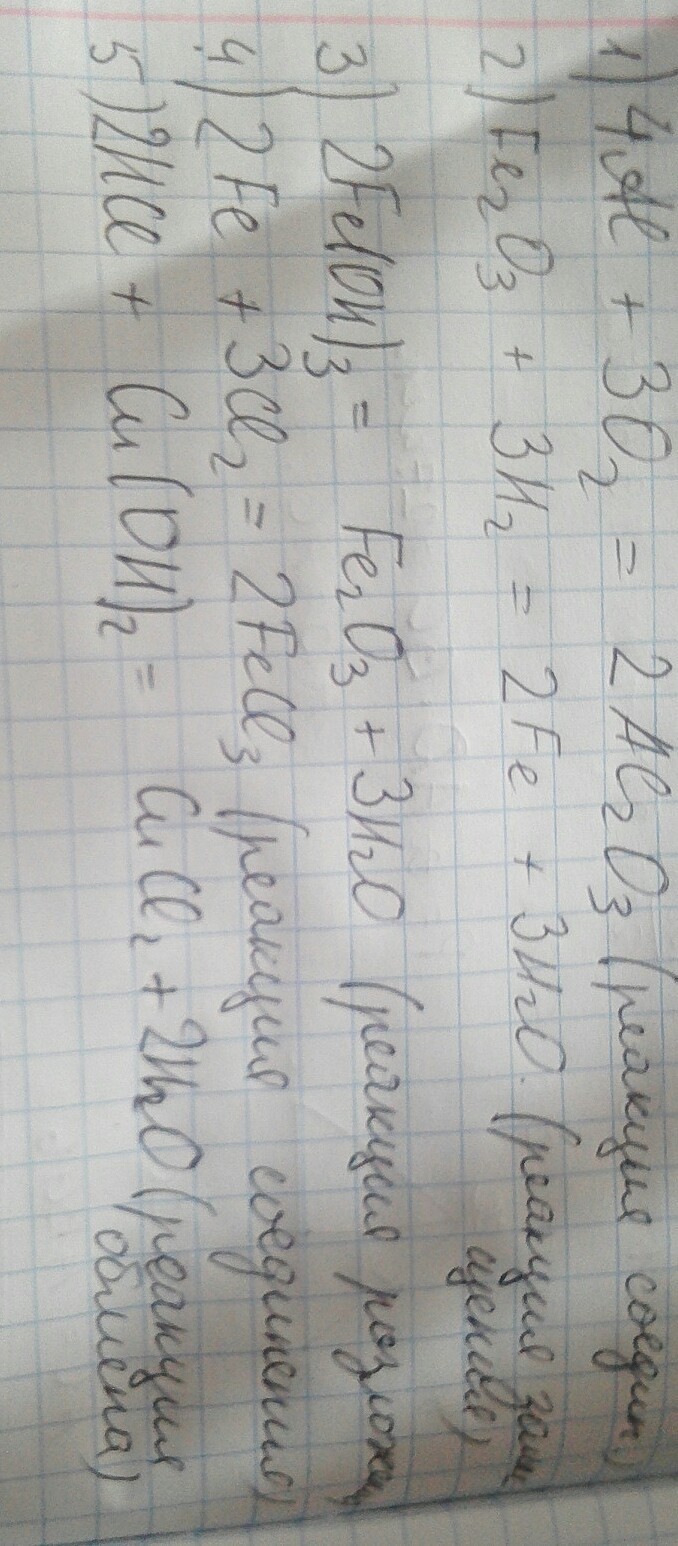 1) 4Al + 3O₂ = 2Al₂O₃ (реакция соедин)
2) Fe₂O₃ + 3H₂ = 2Fe + 3H₂O. (реакция заме
щения)
3) 2Fe(OH)₃ = Fe₂O₃ + 3H₂O (реакция разложен)
4) 2Fe + 3Cl₂ = 2FeCl₃ (реакция соединения)
5) 2HCl + Cu(OH)₂ = CuCl₂ + 2H₂O (реакция
обмена)